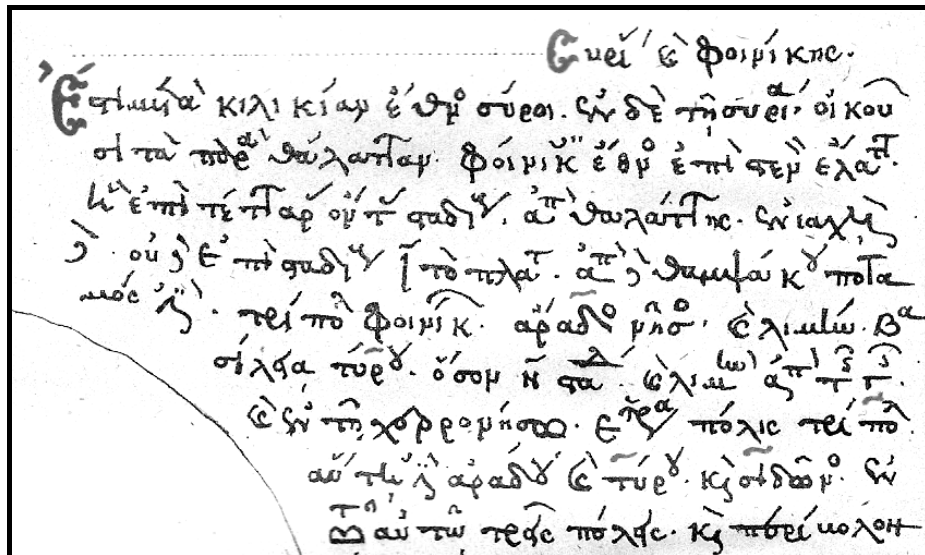 Cυρί καὶ φοινίκης.
Ἔστι μετὰ κιλικίαν ἔθνο σύροι. ἐν δὲ τῆ συρία οἰκοῦ
σι τὰ παρὰ θάλατταν φοίνικ ἔθνο ἐπὶ στενὸν ἔλατ.
ἢ ἐπὶ τετταρ σταδί, ἀπὸ θαλάττης. ἐνιαχῆ
δ. οὐδ ἐπὶ σταδί ῑ τὸ πλατ. ἀπὸ δ θαψάκου ποτα
μός ἐστ. τρίπολ φοινίκ. ἄραδο νῆσο. καὶ λιμὴν. βα
σίλεια τύρου. ὅσον η̄ στα καὶ λιμὴν ἀπὸ τ γ.
καὶ ἐν τῆ χερρονήσω. ἑτέρα πόλις τρίπολ.
αὕτη ἐστ ἀράδου καὶ τύρου. καὶ σιδῶνο. ἐν
ταυτῶ τρεῖς πόλεις. καὶ περίβολον